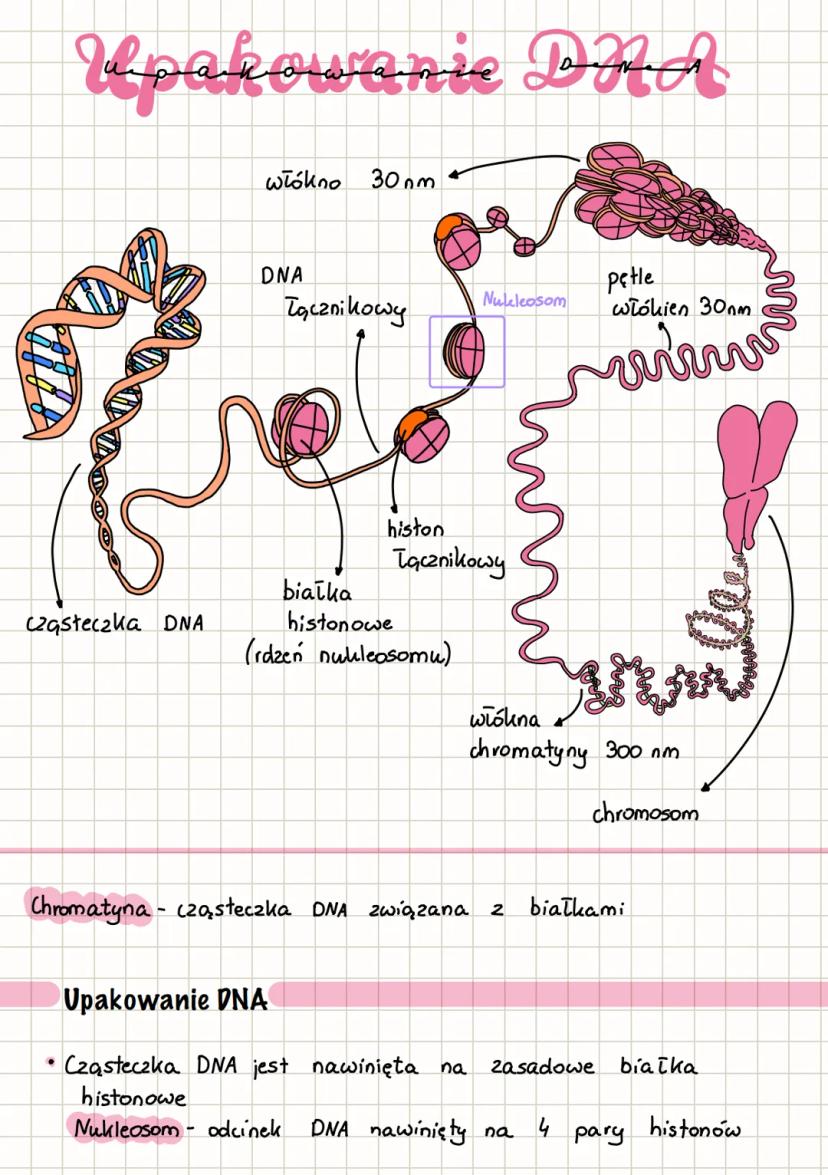 Upakowanie DNA
włókno 30nm
DNA
łącznikowy
Nukleosom
pętle
włókien 30nm
histon
łącznikowy
białka
histonowe
(rdzeń nukleosomu)
cząsteczka DNA
włókna
chromatyny 300 nm
chromosom
Chromatyna - cząsteczka DNA związana z białkami
Upakowanie DNA
• Cząsteczka DNA jest nawinięta na zasadowe białka
histonowe
Nukleosom - odcinek DNA nawinięty na 4 pary histonów